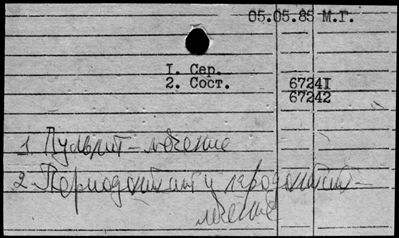 05.05.85 М.Г.
1. Сер.
2. Сост. 67241
67242
1. Пульпит - лечение
2. Периодонтит и пародонтит -
лечение